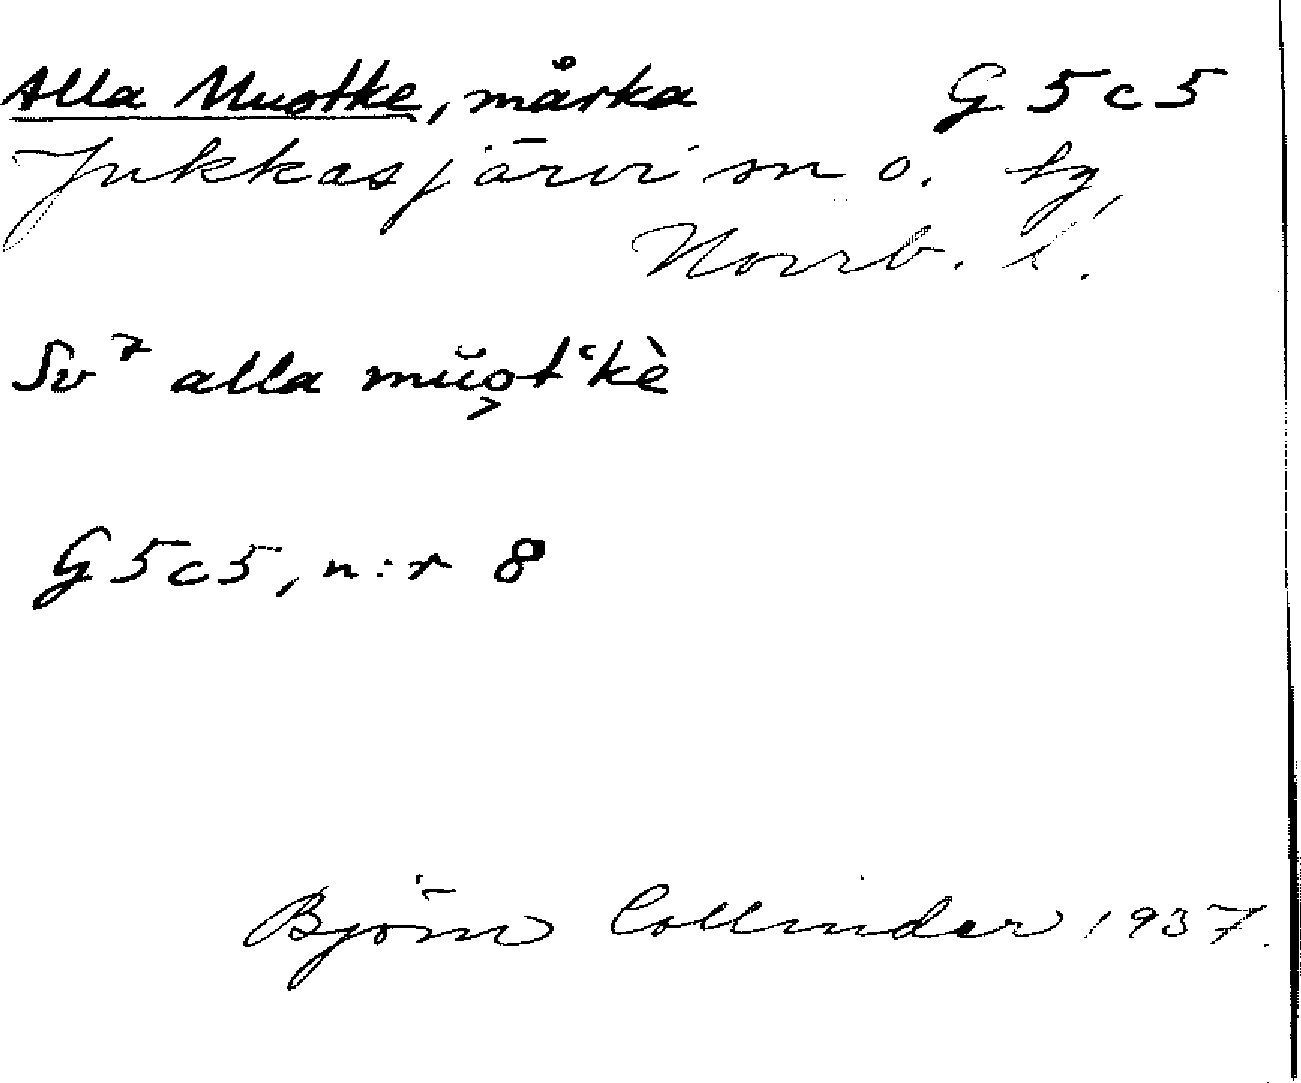 Alla Muotke, mårka G 5 c 5
Jukkasjärvi sn o. tg,
Norrb. l.
Sv⁷ alla mŭo̬t‘kè
G 5 c 5, n:r 8
Björn Collinder 1937.